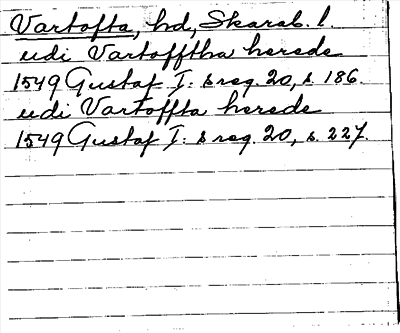 Vartofta, hd, Skarab. l.
udi Vartofftha herede
1549 Gustaf I: s reg. 20, s. 186.
udi Vartoffta herede
1549 Gustaf I: s reg. 20, s. 227.